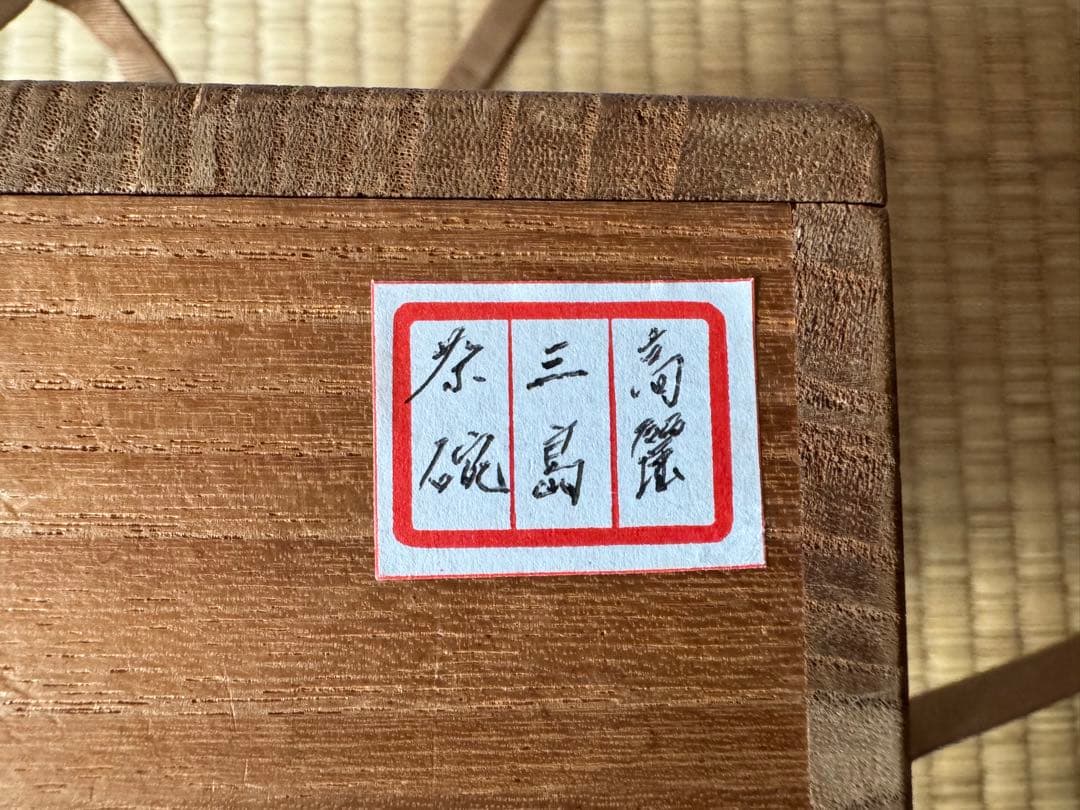 高麗
三島
茶碗